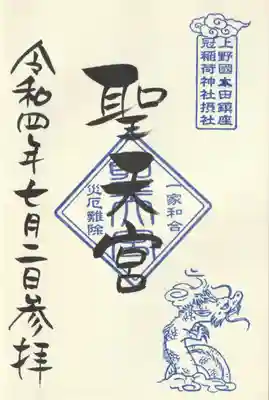 上野國太田鎮座
冠稲荷神社摂社
聖天宮
一家和合
災厄難除
令和四年七月二日参拝